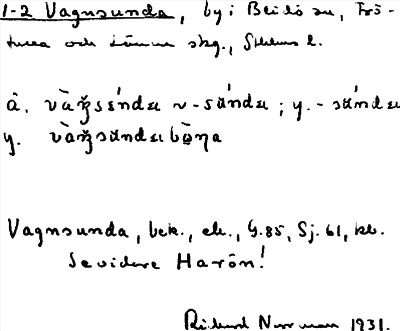 1-2 Vagnsunda, by i Blidö sn, Frö-
tuna och Länna skg., Sthlms l.
å. vàǥsǝ́ndɛ v -sǘndɛ ; y. -sǘndɛ
y. vàǥsǘndɛbǫ̀ŋa
Vagnsunda, bek., ek., G.85, Sj. 61, kb.
Se vidare Harön!
Rikard Norrman 1931.